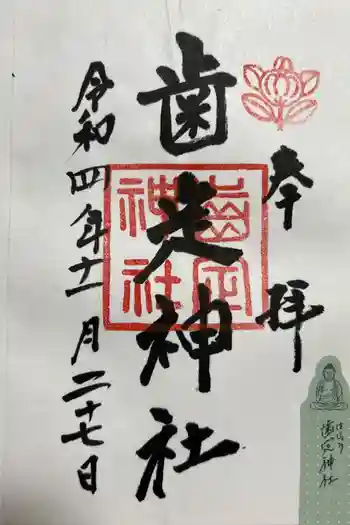 奉拝
歯定神社
令和四年十一月二十七日
歯定
神社
歯定神社